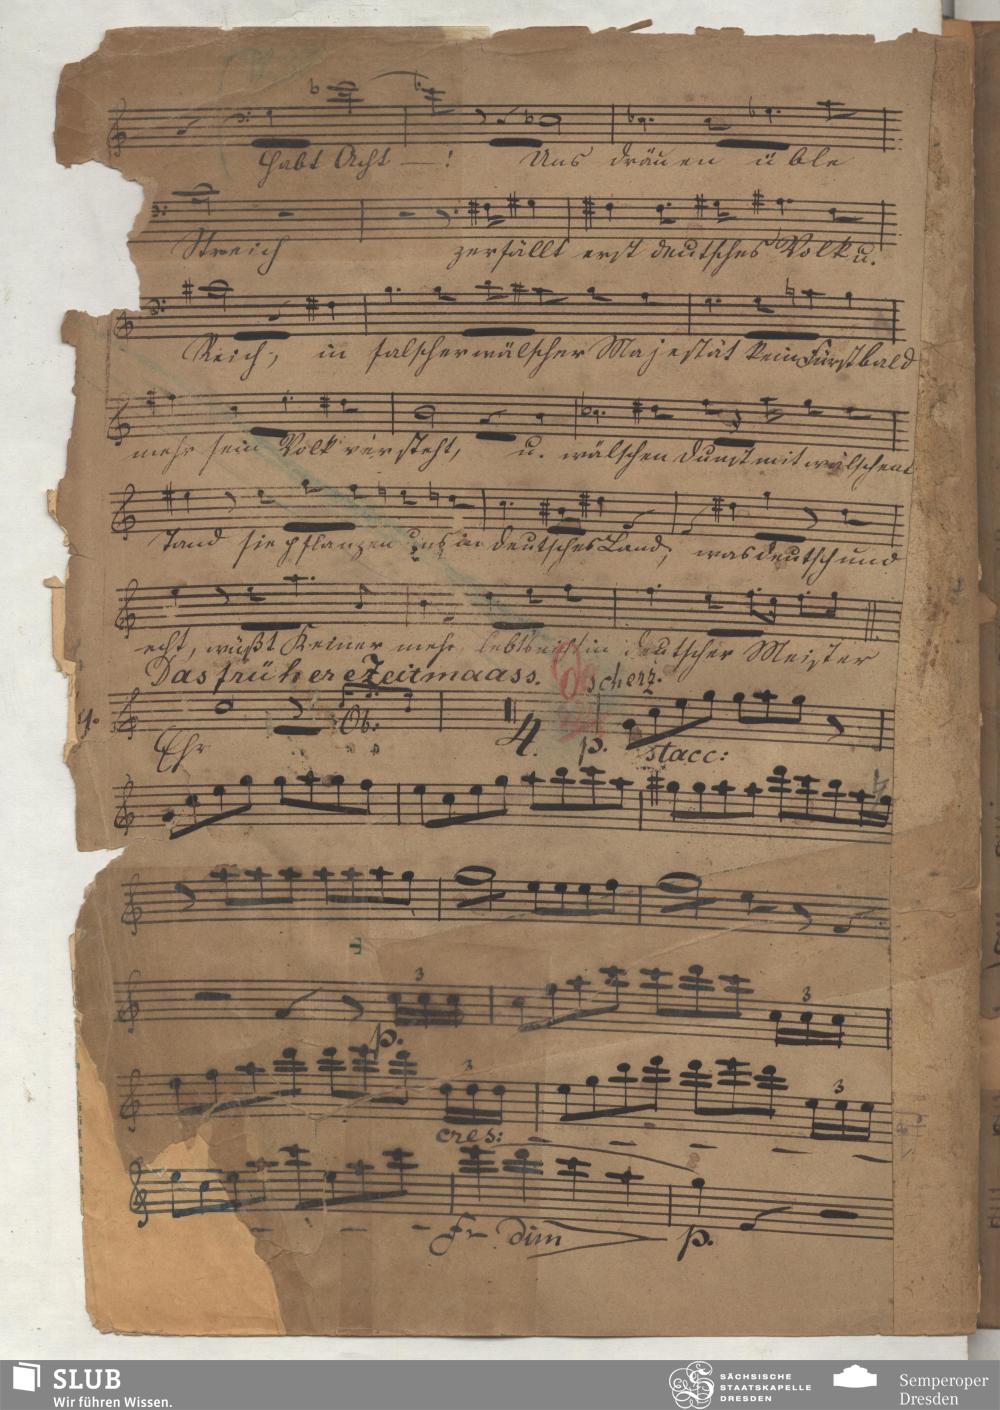 Habt Acht — !    Uns dräuen üble
Streich    zerfällt erst deutsches Volk u.
Reich, in falscher wälscher Majestät kein Fürst bald
mehr sein Volk versteht, u. wälschen Dunst mit wälschem
Tand sie pflanzen uns in deutsches Land, was deutsch und
echt, wüßt Keiner mehr, lebts nicht in deutscher Meister
Das frühere Zeitmaass. scherz.
Ob:
4. p. stacc:
Ehr
3
p. 3
3
cres: 3
dim p.
SLUB
Wir führen Wissen.
SÄCHSISCHE
STAATSKAPELLE
DRESDEN
Semperoper
Dresden